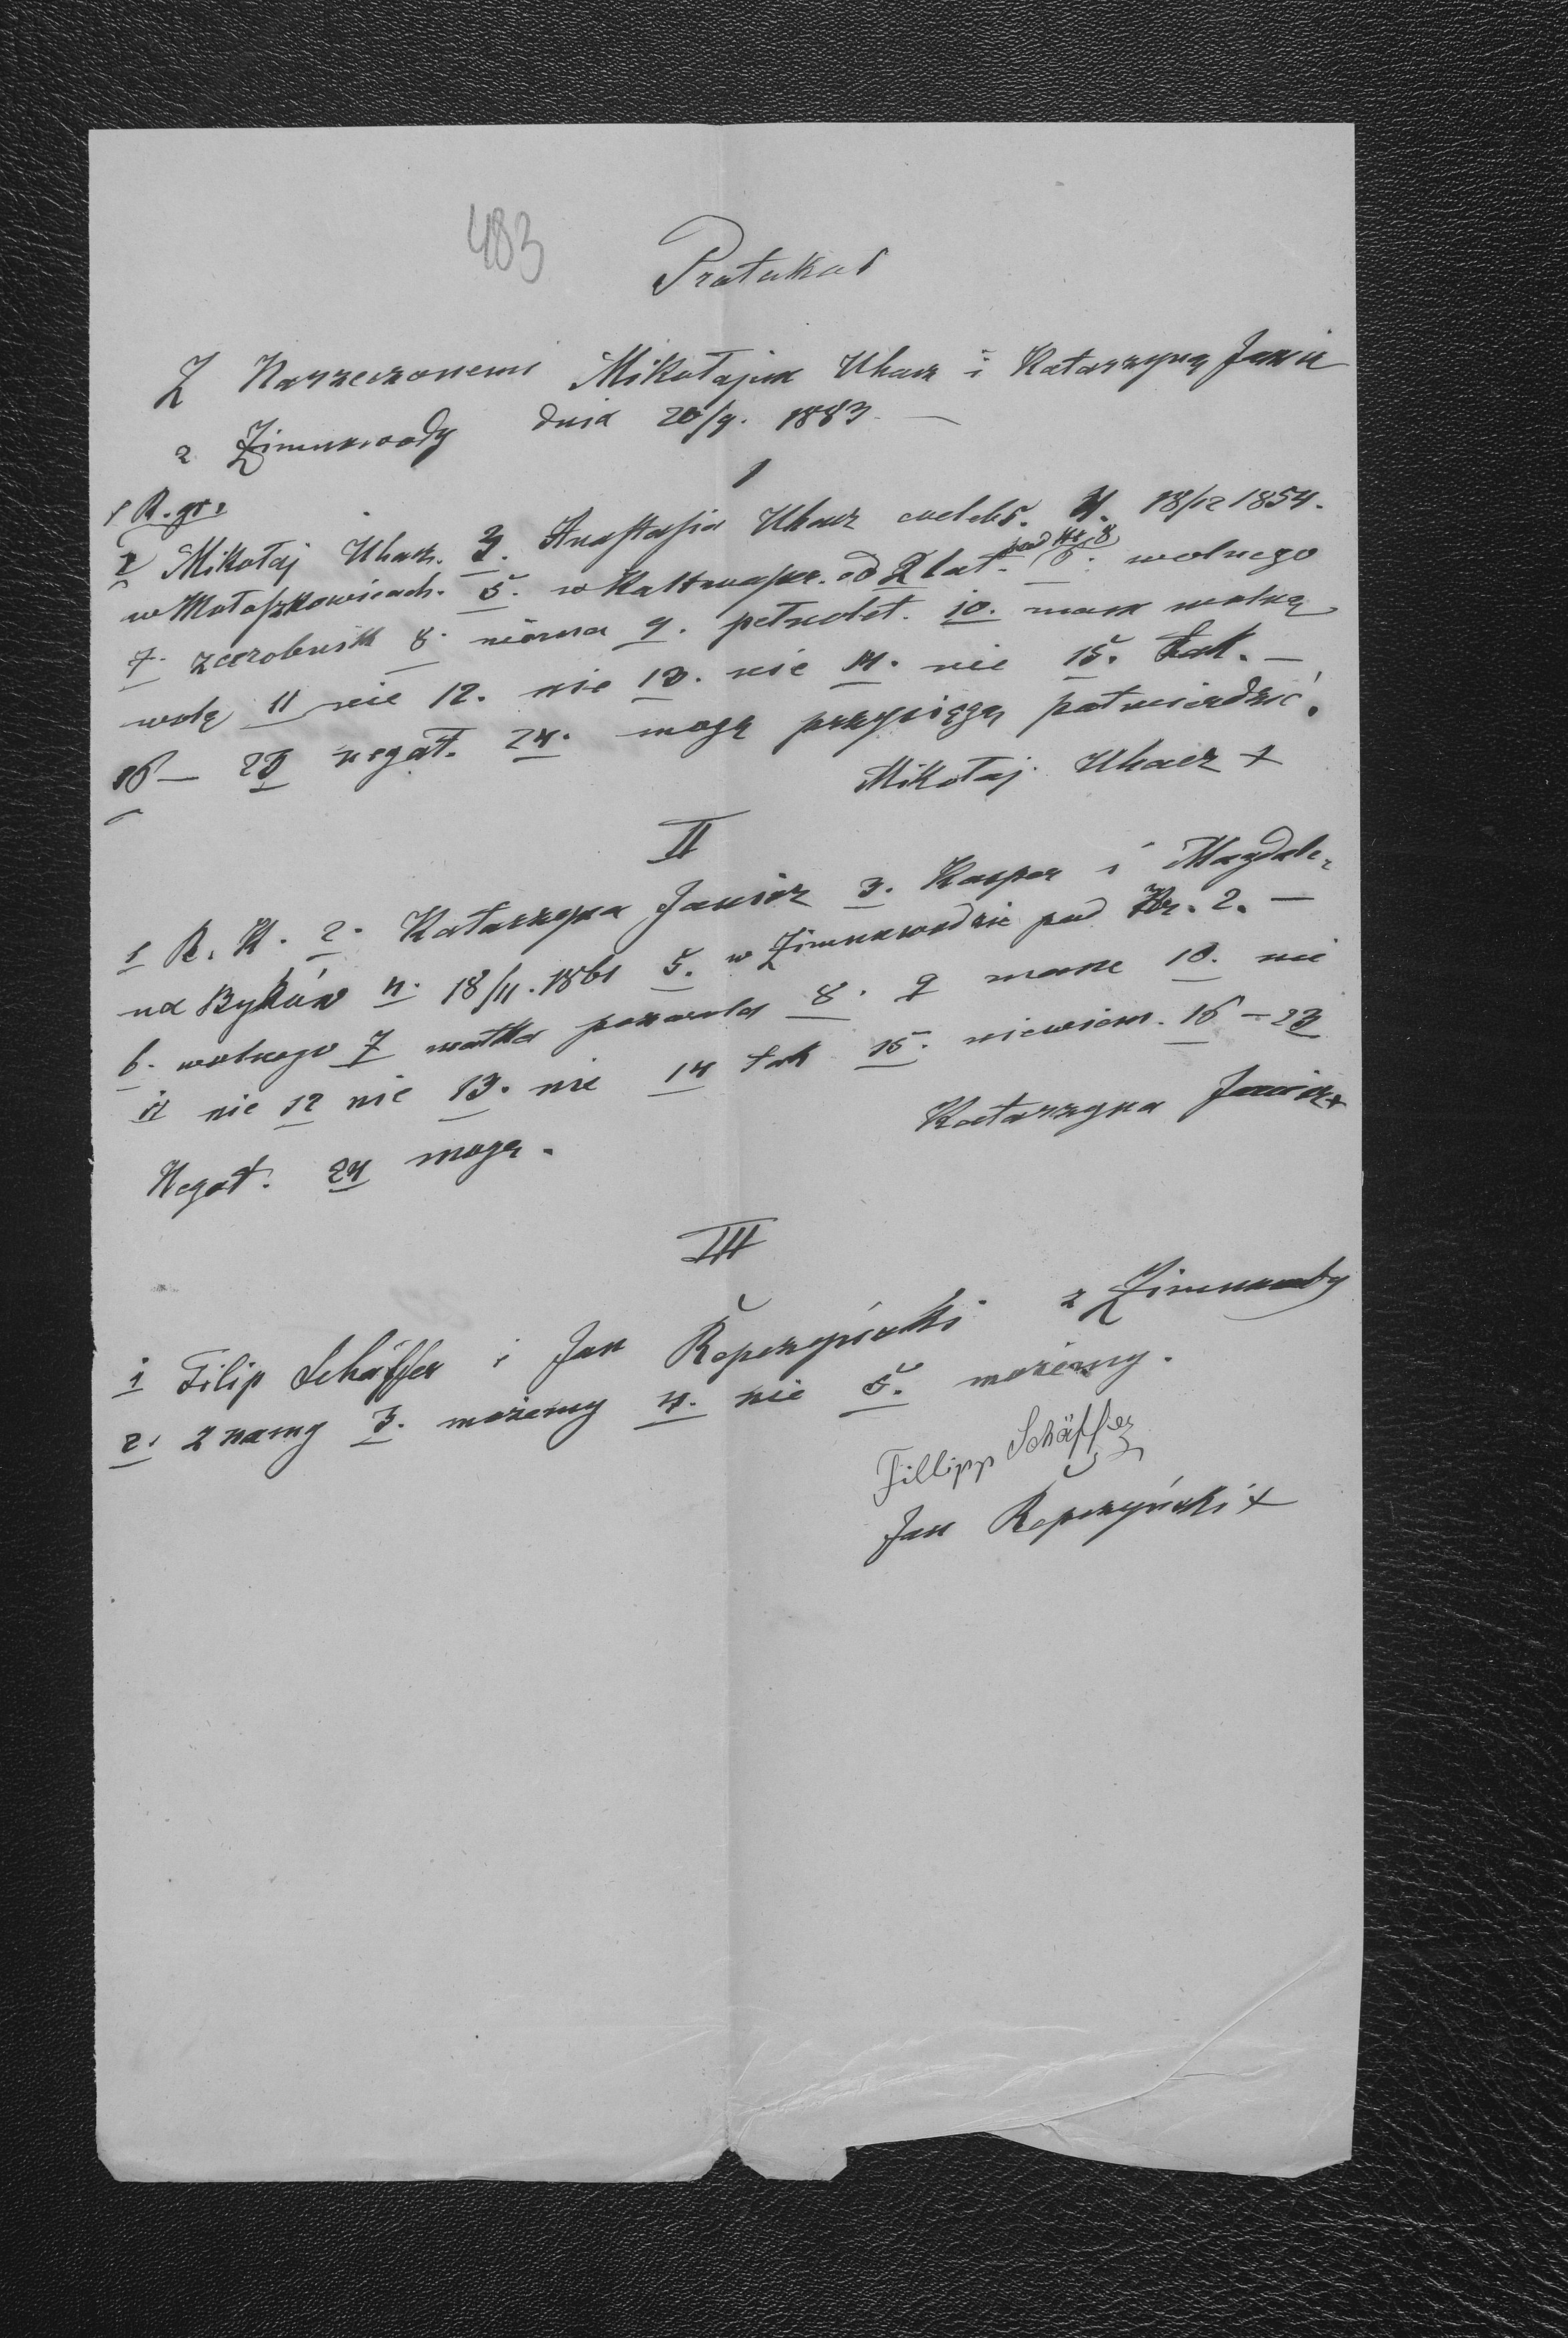 483
Protokoł
Z Narzeczonemi Mikołajem Uhacz i Katarzyną Janicz
z Zimnowody dnia 20/9. 1883 —
I
1 R. gr.
2 Mikołaj Uhacz. 3. Anastasia Uhacz coelebs. 4. 18/12 1854.
pod Nr. 8
w Małaszkowicach. 5. w Kaltwasser. od 2 lat. 6. wolnego
7. zarobnik 8. niema 9. pełnolet. 10. mam wolną
wolę 11 nie 12. nie 13. nie 14. nie 15. tak. —
16 — 23 negat. 24. mogę przysięgą potwierdzić.
Mikołaj Uhacz +
II
1 R. K. 2. Katarzyna Janicz 3. Kasper i Magdale-
na Byków 4. 18/11. 1861 5. w Zimnowodzie pod Nr. 2. —
6. wolnego 7 matka pozwala 8. 9 mam 10. nie
11 nie 12 nie 13. nie 14 tak 15. niewiem. 16 — 23
Negat. 24 mogę.
Katarzyna Janicz +
III
1 Filip Schäffer i Jan Kopczyński z Zimnowody
2. znamy 3. możemy 4. nie 5. możemy.
Fillipp Schäffer
Jan Kopczyński +